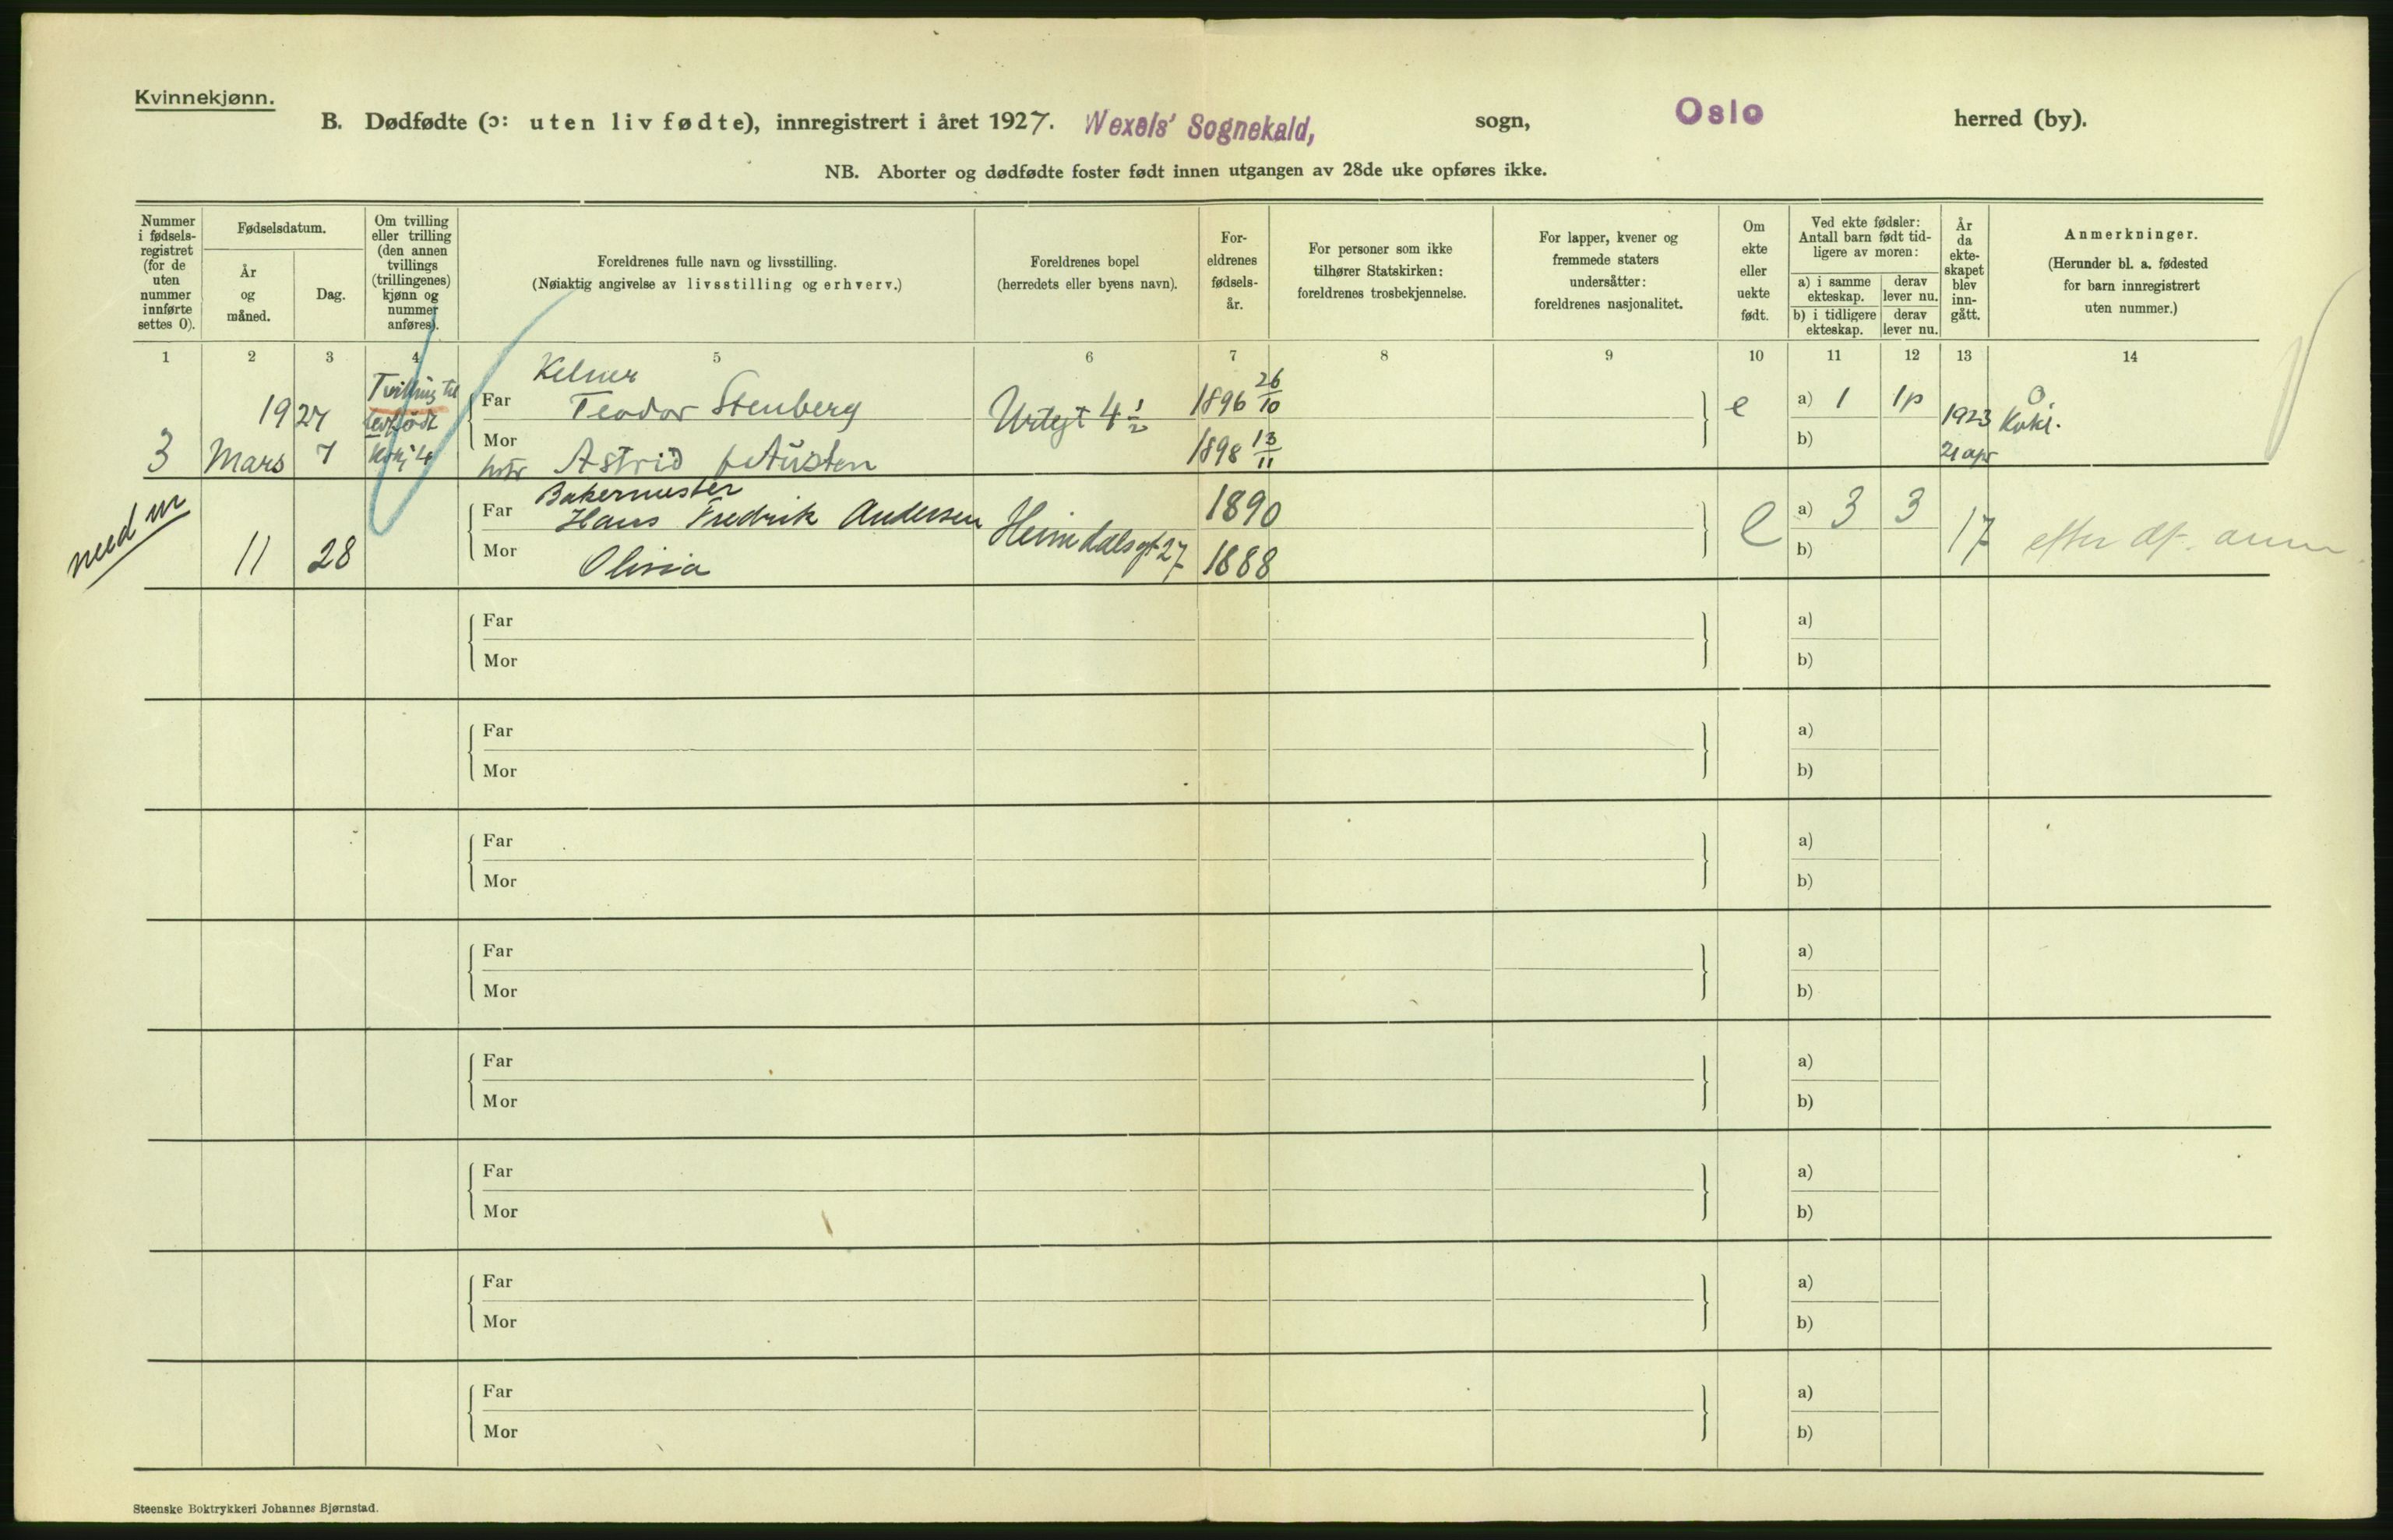 Kvinnekjønn.
B. Dødfødte (ɔ: uten liv fødte), innregistrert i året 1927. Wexels' Sognekald, sogn, Oslo herred (by).
NB. Aborter og dødfødte foster født innen utgangen av 28de uke opføres ikke.
Nummer i fødsels-registret (for de uten nummer innførte settes 0).
Fødselsdatum.
År og måned.
Dag.
Om tvilling eller trilling (den annen tvillings (trillingenes) kjønn og nummer anføres).
Foreldrenes fulle navn og livsstilling.
(Nøiaktig angivelse av livsstilling og erhverv.)
Foreldrenes bopel
(herredets eller byens navn).
For-eldrenes fødsels-år.
For personer som ikke tilhører Statskirken: foreldrenes trosbekjennelse.
For lapper, kvener og fremmede staters undersåtter: foreldrenes nasjonalitet.
Om ekte eller uekte født.
Ved ekte fødsler: Antall barn født tid-ligere av moren:
a) i samme ekteskap.
derav lever nu.
b) i tidligere ekteskap.
derav lever nu.
År da ekte-skapet blev inn-gått.
Anmerkninger.
(Herunder bl. a. fødested for barn innregistrert uten nummer.)
1 2 3 4 5 6 7 8 9 10 11 12 13 14
Kelner
Tvilling til
Far Teodor Stenberg Urtegt 4 1/2 1896 26/10 e a) 1 1
1927 levfødt
1923
Mor b)
3 Mars 7 Astrid f Austen 1898 13/11 21 apr
Bakermester
Far Hans Fredrik Andersen Heimdalsgt 27 1890 e a) 3 3 17
Mor b)
11 28 Olivia 1888 efter df. anm
Far a)
Mor b)
Far a)
Mor b)
Far a)
Mor b)
Far a)
Mor b)
Far a)
Mor b)
Far a)
Mor b)
Far a)
Mor b)
Far a)
Mor b)
Steenske Boktrykkeri Johannes Bjørnstad.